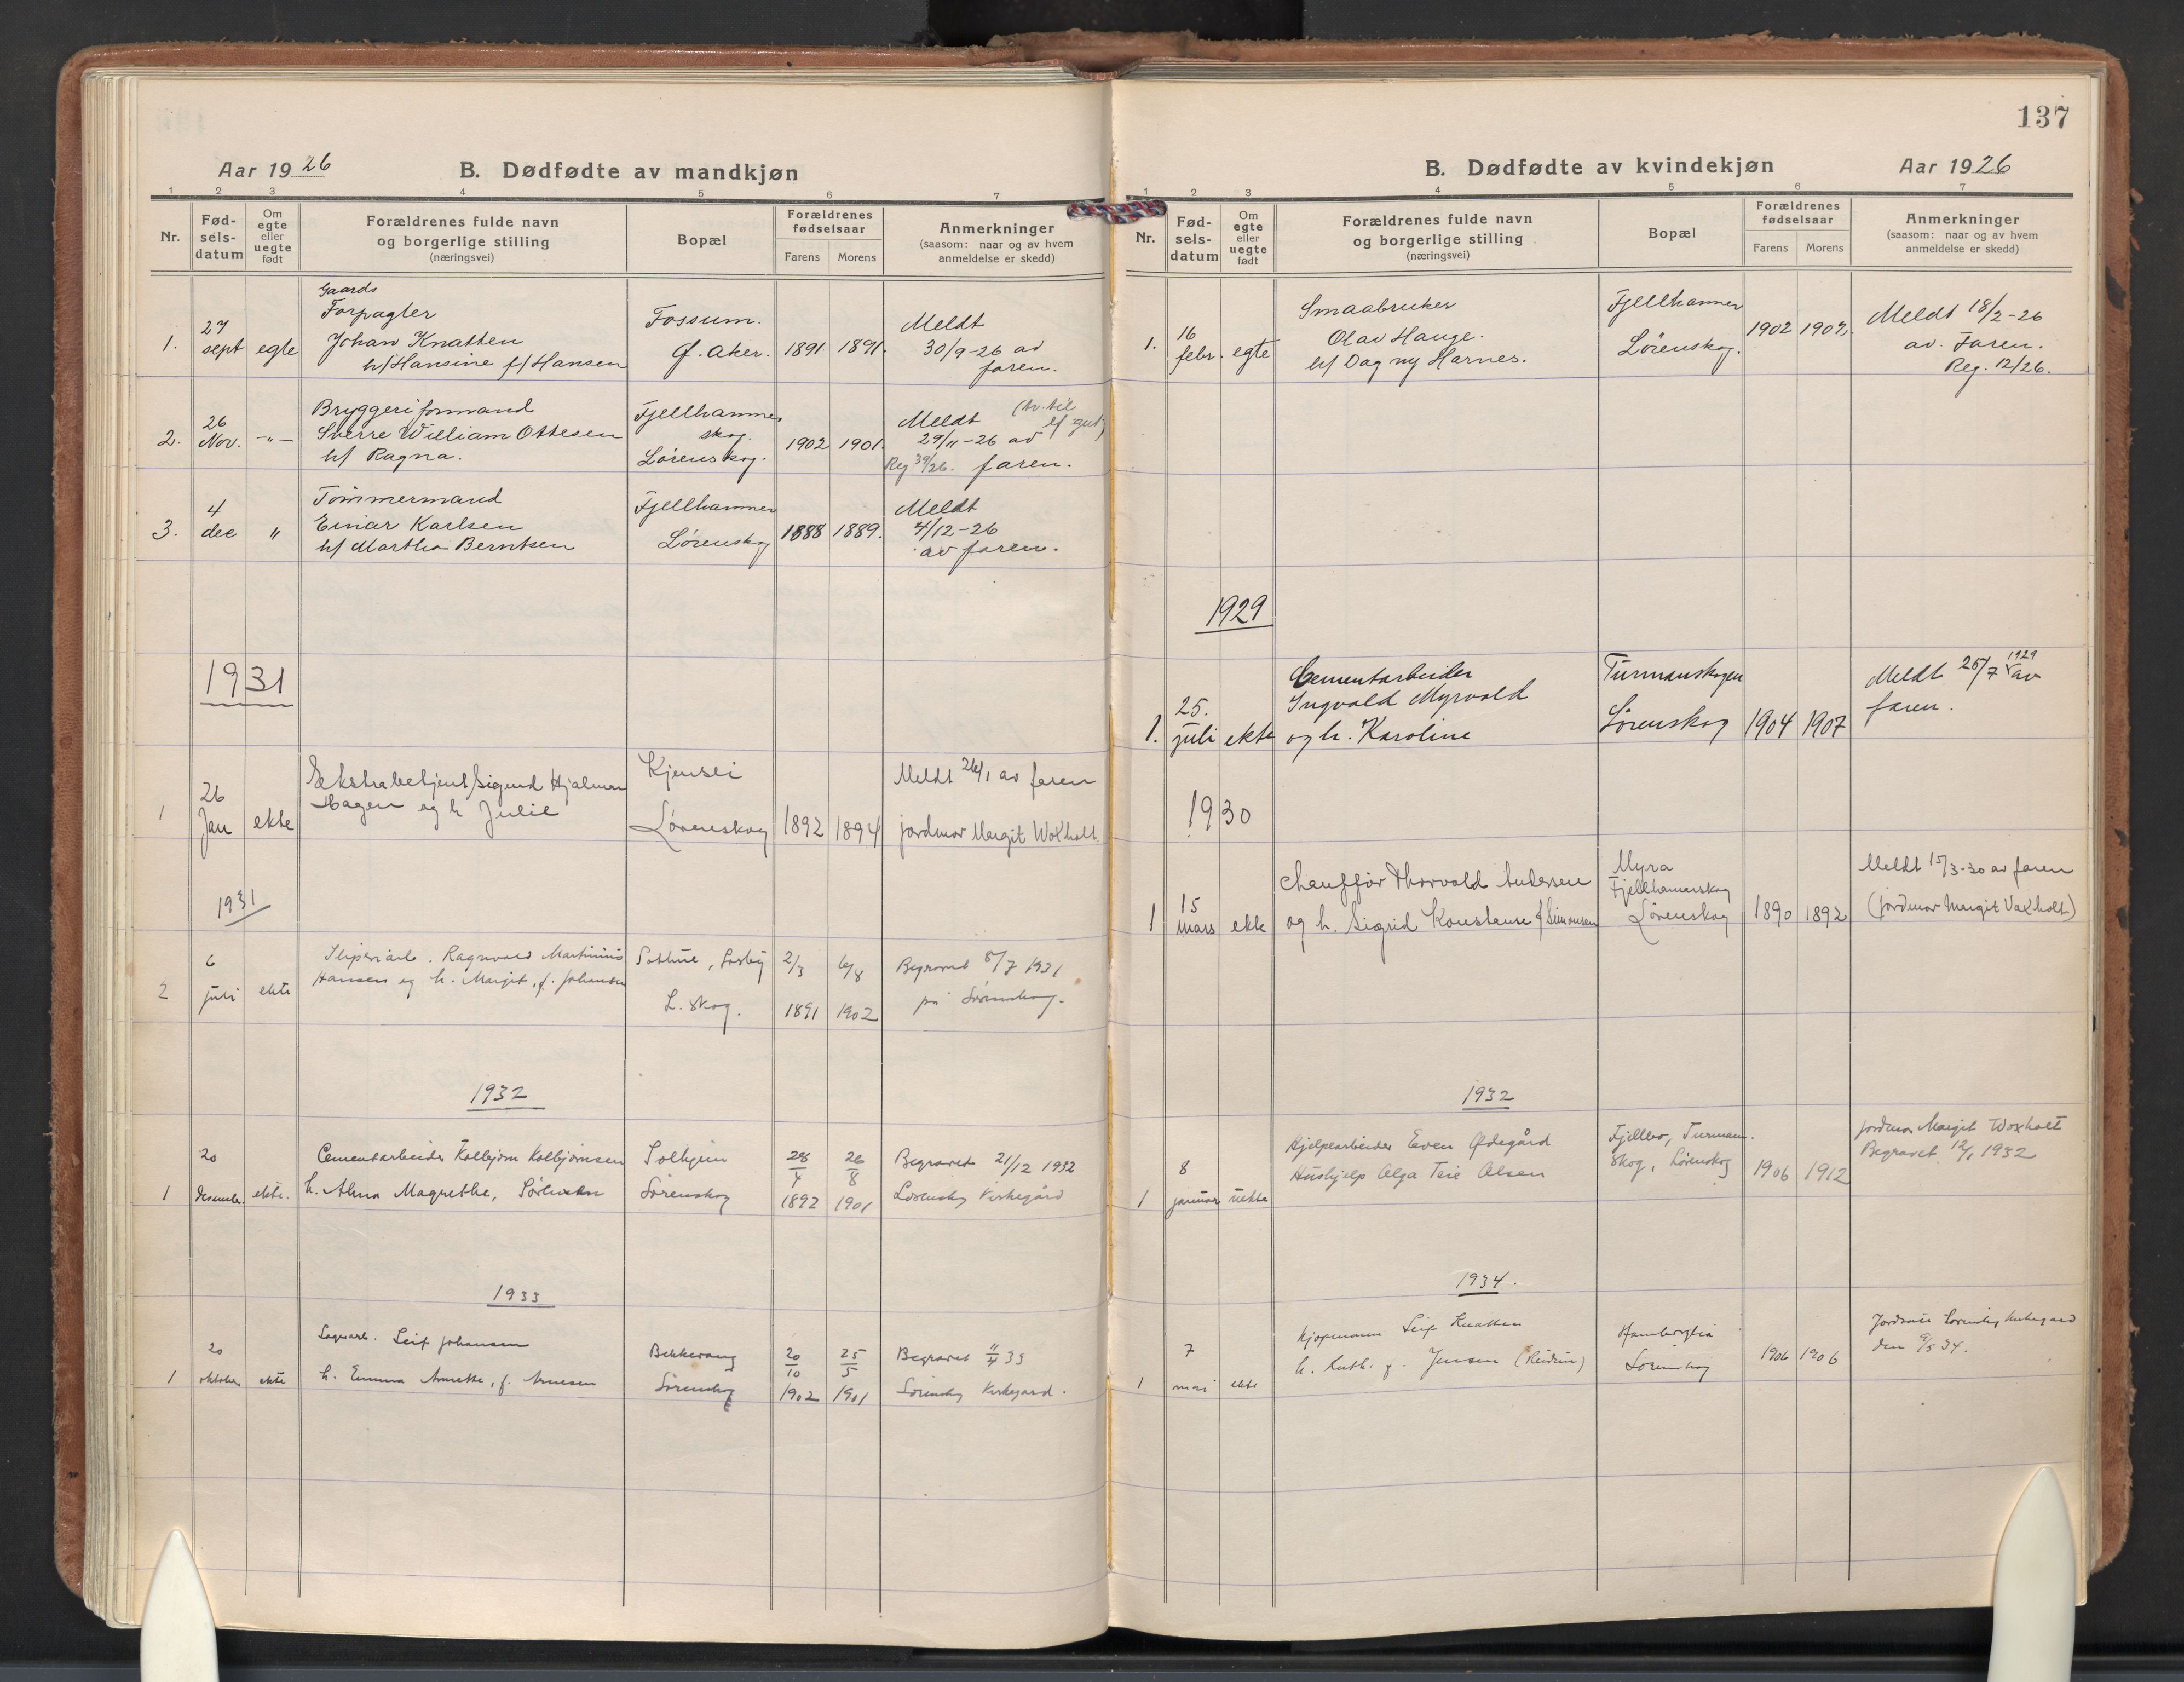 Aar 1926
B. Dødfødte av mandkjøn
1 2 3 4 5 6 7
Nr.
Fød-
sels-
datum
Om
egte
eller
uegte
født
Forældrenes fulde navn
og borgerlige stilling
(næringsvei)
Bopæl
Forældrenes
fødselsaar
Farens Morens
Anmerkninger
(saasom: naar og av hvem
anmeldelse er skedd)
Gaards
Forpagter
1. 27 sept egte
Johan Knatten
h/ Hansine f/ Hansen
Fossum.
Ø. Aker.
1891 1891.
Meldt
30/9-26 av
faren.
2. 26 Nov. -"-
Bryggeriformand
Sverre William Ottesen
h/ Ragna.
Fjellhammer
skog.
Lørenskog.
1902 1901.
Meldt (tv. til
29/11-26 av lf gut)
Reg 39/26. faren.
3. 4 dec "
Tømmermand
Einar Karlsen
h/ Martha Berntsen
Fjellhammer
Lørenskog
1888 1889.
Meldt
4/12-26
av faren.
1931
1 26 Jan ekte
Ekstrabetjent Sigurd Hjalmar
Hagen og h Julie
Lørenskog
1892 1894
Meldt 26/1 av faren
jordmor Margit Woxholt
1931
2 6 juli ekte
Ragnvald Martinius
Hansen og h. Margit, f. Johansen
Losby
L. skog.
2/3 6/8
1891 1902
Begravet 8/7 1931
på Lørenskog.
1932
1 20 desember ekte.
Cementarbeider Kolbjørn Kolbjørnsen
h. Alma Magrethe, Sørensen
Solheim
Lørenskog
28/4 26/8
1892 1901
Begravet 21/12 1932
Lørenskog Kirkegård
1933
1 20 oktober ekte
Sagarb. Leif Johansen
h. Emma Annette, f. Arnesen
Bekkevang
Lørenskog
20/10 25/5
1902 1901
Begravet 11/4 33
Lørenskog Kirkegård.
137
B. Dødfødte av kvindekjøn
Aar 1926
1 2 3 4 5 6 7
Nr.
Fød-
sels-
datum
Om
egte
eller
uegte
født
Forældrenes fulde navn
og borgerlige stilling
(næringsvei)
Bopæl
Forældrenes
fødselsaar
Farens Morens
Anmerkninger
(saasom: naar og av hvem
anmeldelse er skedd)
1. 16 febr. egte
Smaabruker
Olav Hauge.
h/ Dagny Harnes.
Fjellhammer
Lørenskog.
1902 1902.
Meldt 18/2-26
av. Faren.
Reg. 12/26.
1929
1. 25. juli ekte
Cementarbeider
Ingvald Myrvold
og h. Karoline
Turmanskogen
Lørenskog
1904 1907
Meldt 25/7 1929 av
faren.
1930
1 15 Mars ekte
Chauffør Thorvald Andersen
og h. Sigrid Konstanse f Simonsen
Myra
Fjellhamarskog
Lørenskog
1890 1892
Meldt 15/3-30 av faren
(jordmor Margit Vaxholt)
1932
1 8 januar uekte
Hjelpearbeider Even Ødegård
Hushjelp Olga Teie Olsen
Fjellbo, Turman-
skog, Lørenskog
1906 1912
jordmor Margit Woxholt
Begravet 12/1 1932
1934.
1 7 mai ekte
Kjøpmann Leif Knatten
h. Ruth. f. Jensen (Reidun)
Lørenskog
1906 1906
Jordsatt Lørenskog kirkegård
den 9/5 34.